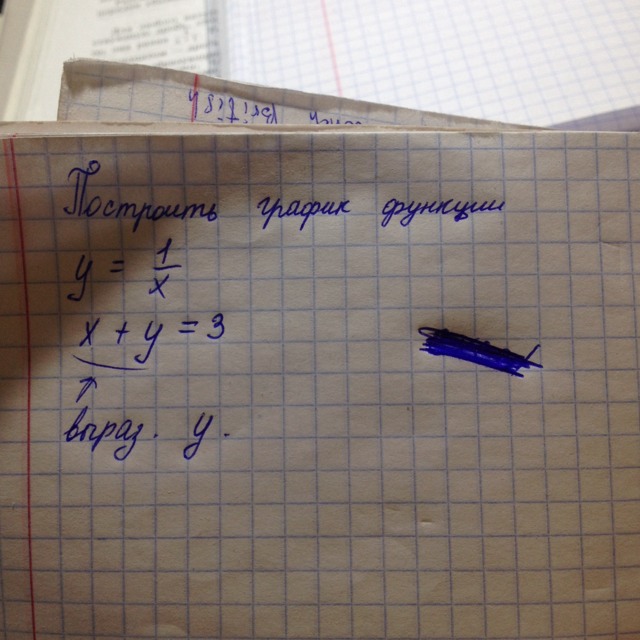 Построить график функции
y = 1/x
x + y = 3
выраз. y.